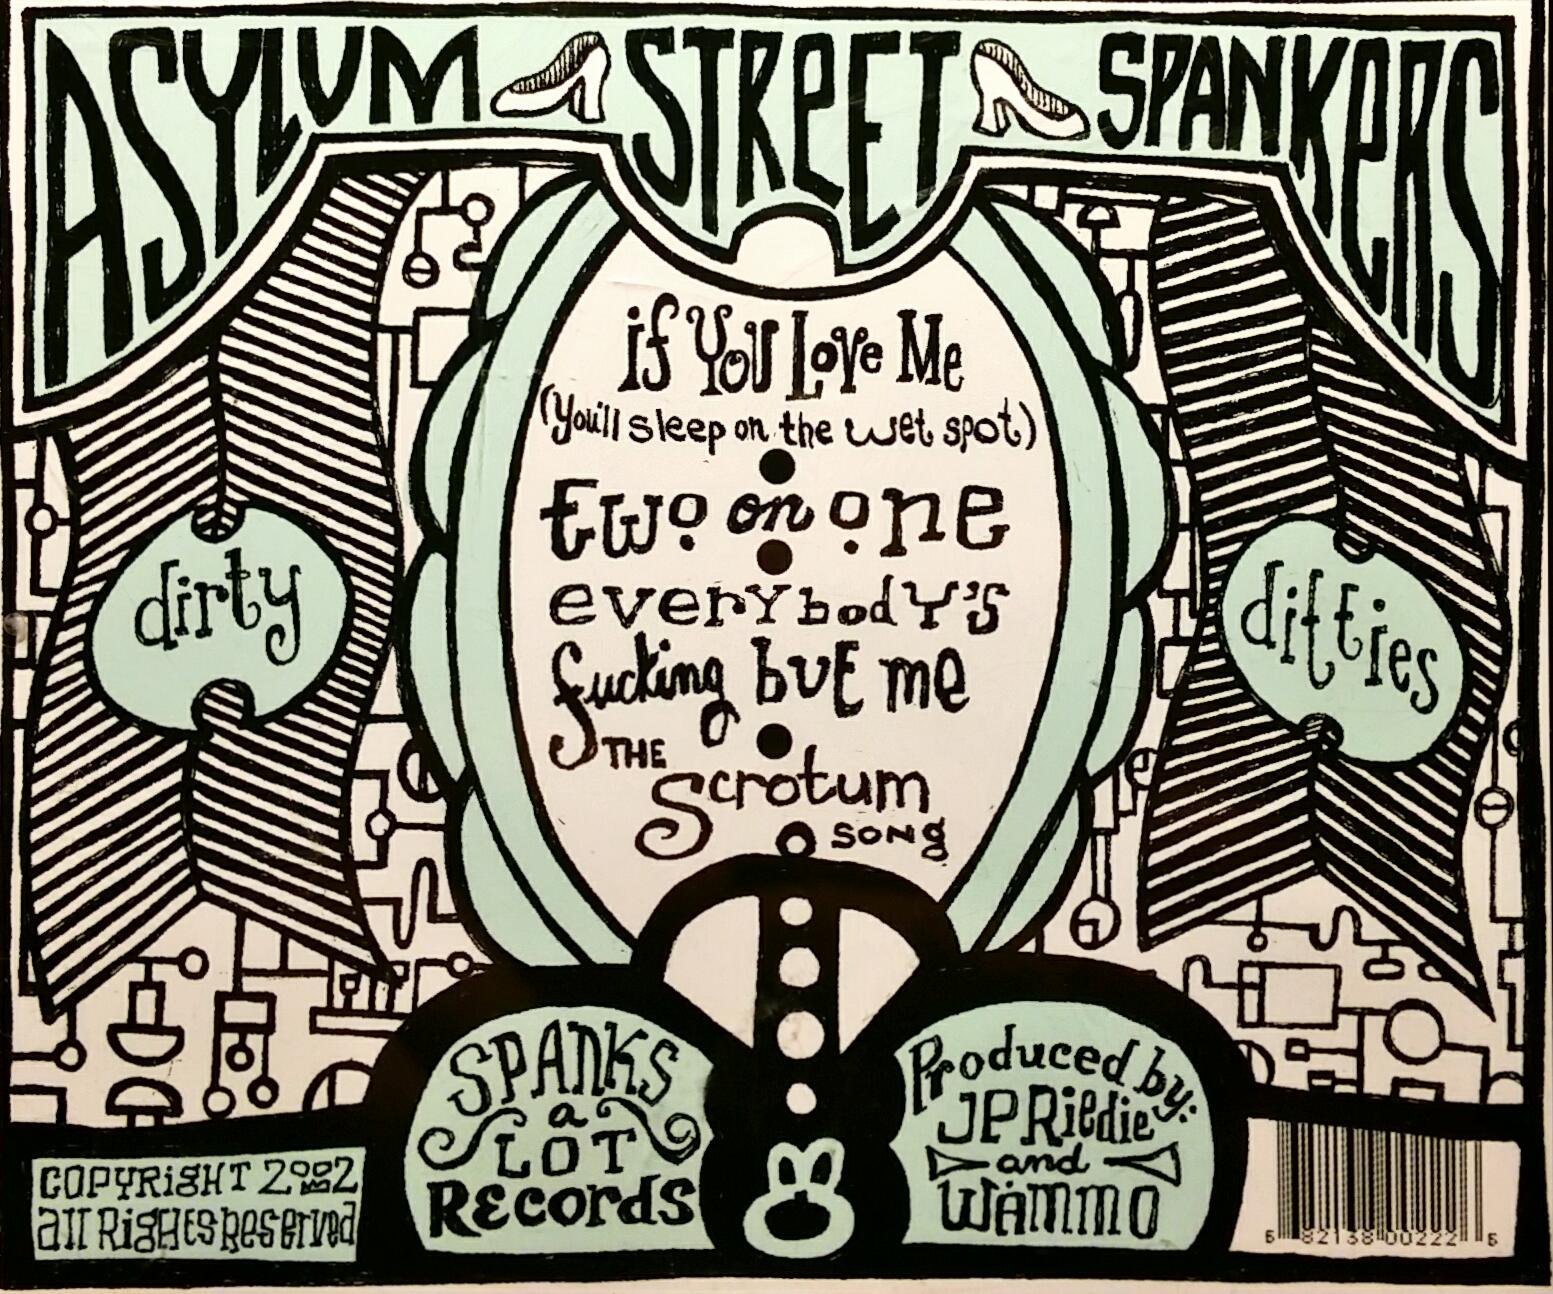 ASYLUM STREET SPANKERS
if You Love Me
(You'll sleep on the wet spot)
two on one
everybody's
fucking but me
THE
Scrotum
SONG
dirty
ditties
SPANKS
a
LOT
Records
Produced by:
JP Riedie
and
WAMMO
COPYRIGHT 2002
all Rights Reserved
6 82138 00222 5